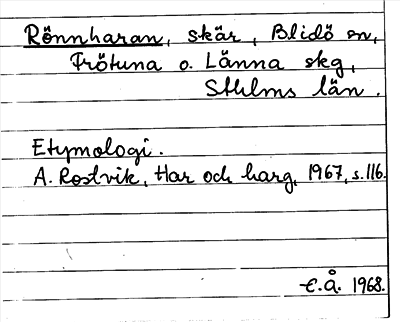 Rönnharan, skär, Blidö sn,
Frötuna o. Länna skg,
Sthlms län.
Etymologi.
A. Rostvik, Har och harg, 1967, s. 116.
E.Å. 1968.